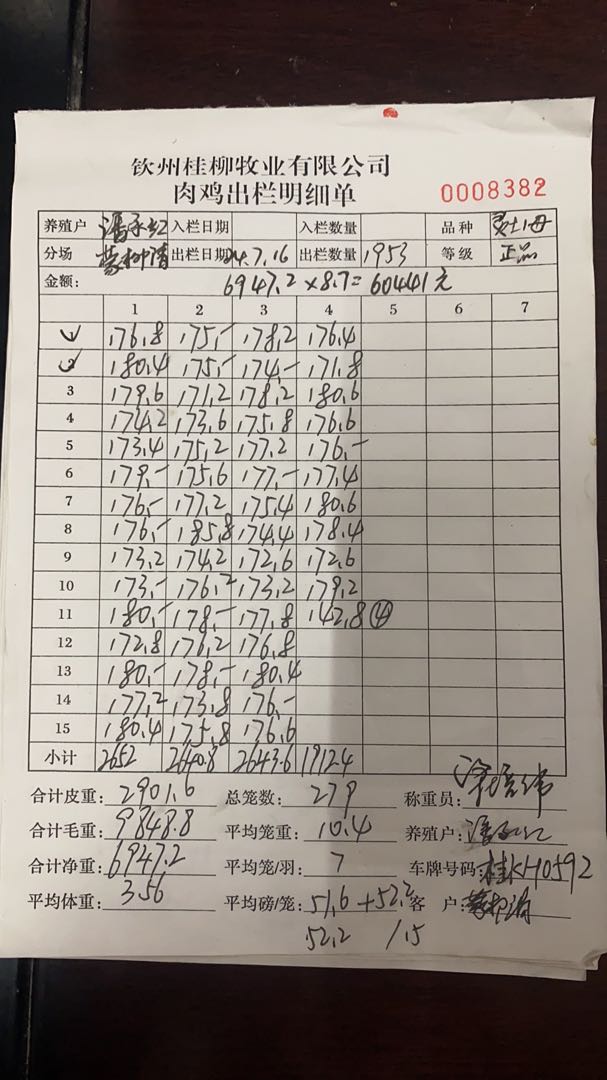 钦州桂柳牧业有限公司
肉鸡出栏明细单 0008382
养殖户 入栏日期 入栏数量 品种 灵土1母
分场 出栏日期 24.7.16 出栏数量 1953 等级 正品
金额: 6947.2×8.7=60441元
1 2 3 4 5 6 7
1 176.8 175.- 178.2 176.4
2 180.4 175.- 174.- 171.8
3 179.6 171.2 178.2 180.6
4 174.2 173.6 175.8 176.6
5 173.4 175.2 177.2 176.-
6 179.- 175.6 177.- 177.4
7 176.- 177.2 175.4 180.6
8 176.- 185.8 174.4 178.4
9 173.2 174.2 172.6 172.6
10 173.- 176.2 173.2 179.2
11 180.- 178.- 177.8 142.8 ④
12 172.8 176.2 176.8
13 180.- 178.- 180.4
14 177.2 173.8 176.-
15 180.4 175.8 176.6
小计 2652 2640.8 2643.6 1912.4
合计皮重: 2901.6 总笼数: 279 称重员:
合计毛重: 9848.8 平均笼重: 10.4 养殖户:
合计净重: 6947.2 平均笼/羽: 7 车牌号码: 桂KH0592
平均体重: 3.56 平均磅/笼: 51.6+52.2 客 户:
52.2 /15